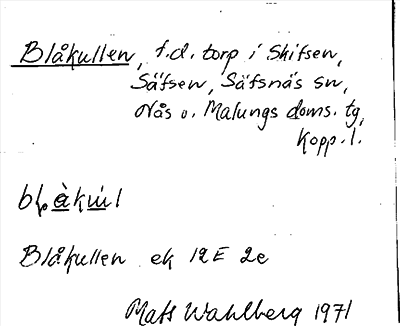 Blåkullen, f.d. torp i Skifsen,
Säfsen, Säfsnäs sn,
Nås o. Malungs doms. tg,
Kopp. l.
Blåkullen ek 12E 2e
Mats Wahlberg 1971